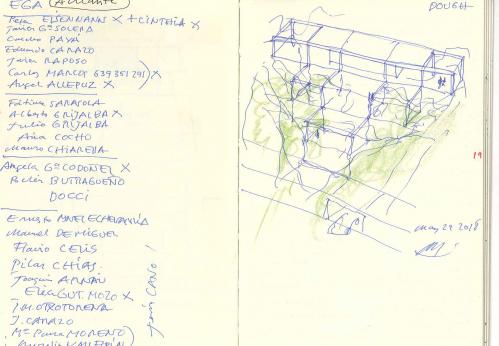 EGA Alicante
Peter EISENMANN X + CINTHIA X
Javier Gª SOLERA
Concha PAYÁ
Eduardo CARAZO
Javier RAPOSO
Carlos MARCOS 639351291) X
Angel ALLEPUZ X
Fátima SARASOLA
Alberto GRIJALBA X
Julio GRIJALBA
Aina COCHO
Mauro CHIARELLA
Angela Gª CODOÑER X
BUTRAGUEÑO
DOCCI
Ernesto
Manuel DE MIGUEL
Flavio CELIS
Pilar CHÍAS.
Joaquin ARNAU
GUT. MOZO X
J.M. OTXOTORENA
J. CARAZO
Mª MORENO
CANO!
DOUGH
19
May 29 2018